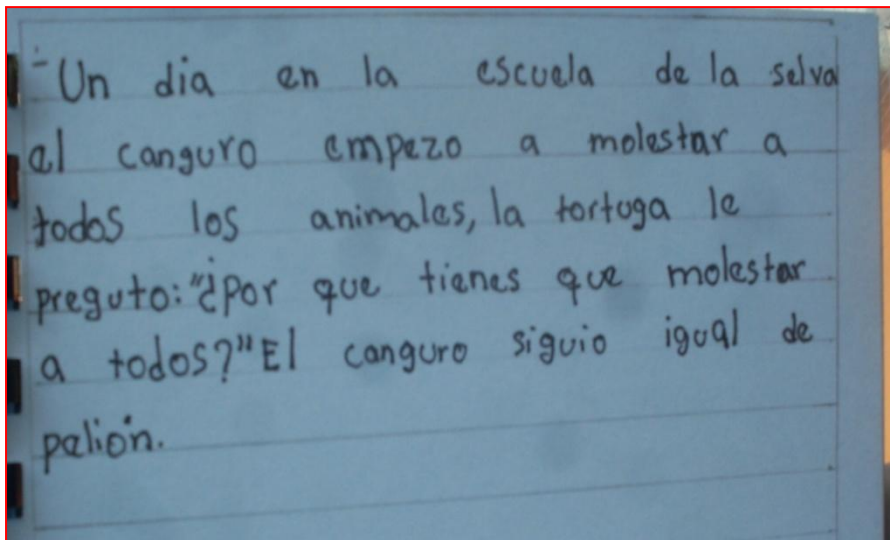 -Un dia en la escuela de la selva
el canguro empezo a molestar a
todos los animales, la tortuga le
preguto:"¿Por que tienes que molestar
a todos?"El canguro siguio igual de
pelión.